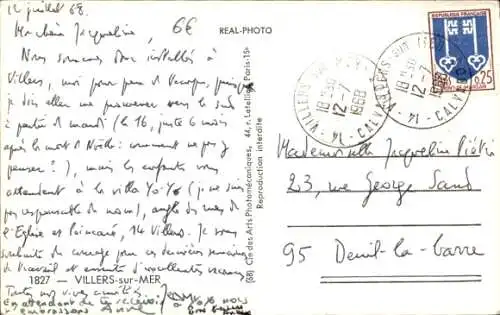 12 juillet 68
6€
Ma chère Jacqueline,
Nous sommes donc installés à
Villers, moi pour peu de vacances, puisque
je dois aller me promener vers le sud
à partir de mardi (le 16, juste 6 mois
après la mort de Noëlle : comment ne pas y
penser ?), mais les enfants vous
attendent à la villa Yo-Yo (je ne suis
pas responsable du nom), angle des rues de
l'Eglise et Poincaré, 14 Villers. Je vous
souhaite du courage pour ces dernières semaines
de travail et ensuite d'excellentes vacances
1827 - VILLERS-sur-MER
Toutes nos vives amitiés.
En attendant de te revoir nous
t'embrassons Anne
REAL-PHOTO
(68) Cie des Arts Photomécaniques, 44, r. Letellier, Paris-15e
Reproduction interdite
REPUBLIQUE FRANÇAISE
0,25
VILLERS SUR MER
18H30
12-7
1968
14 - CALVADOS
VILLERS SUR MER
18H30
12-7
1968
14 - CALVADOS
Mademoiselle Jacqueline
23, rue George Sand
95 Deuil-la-Barre